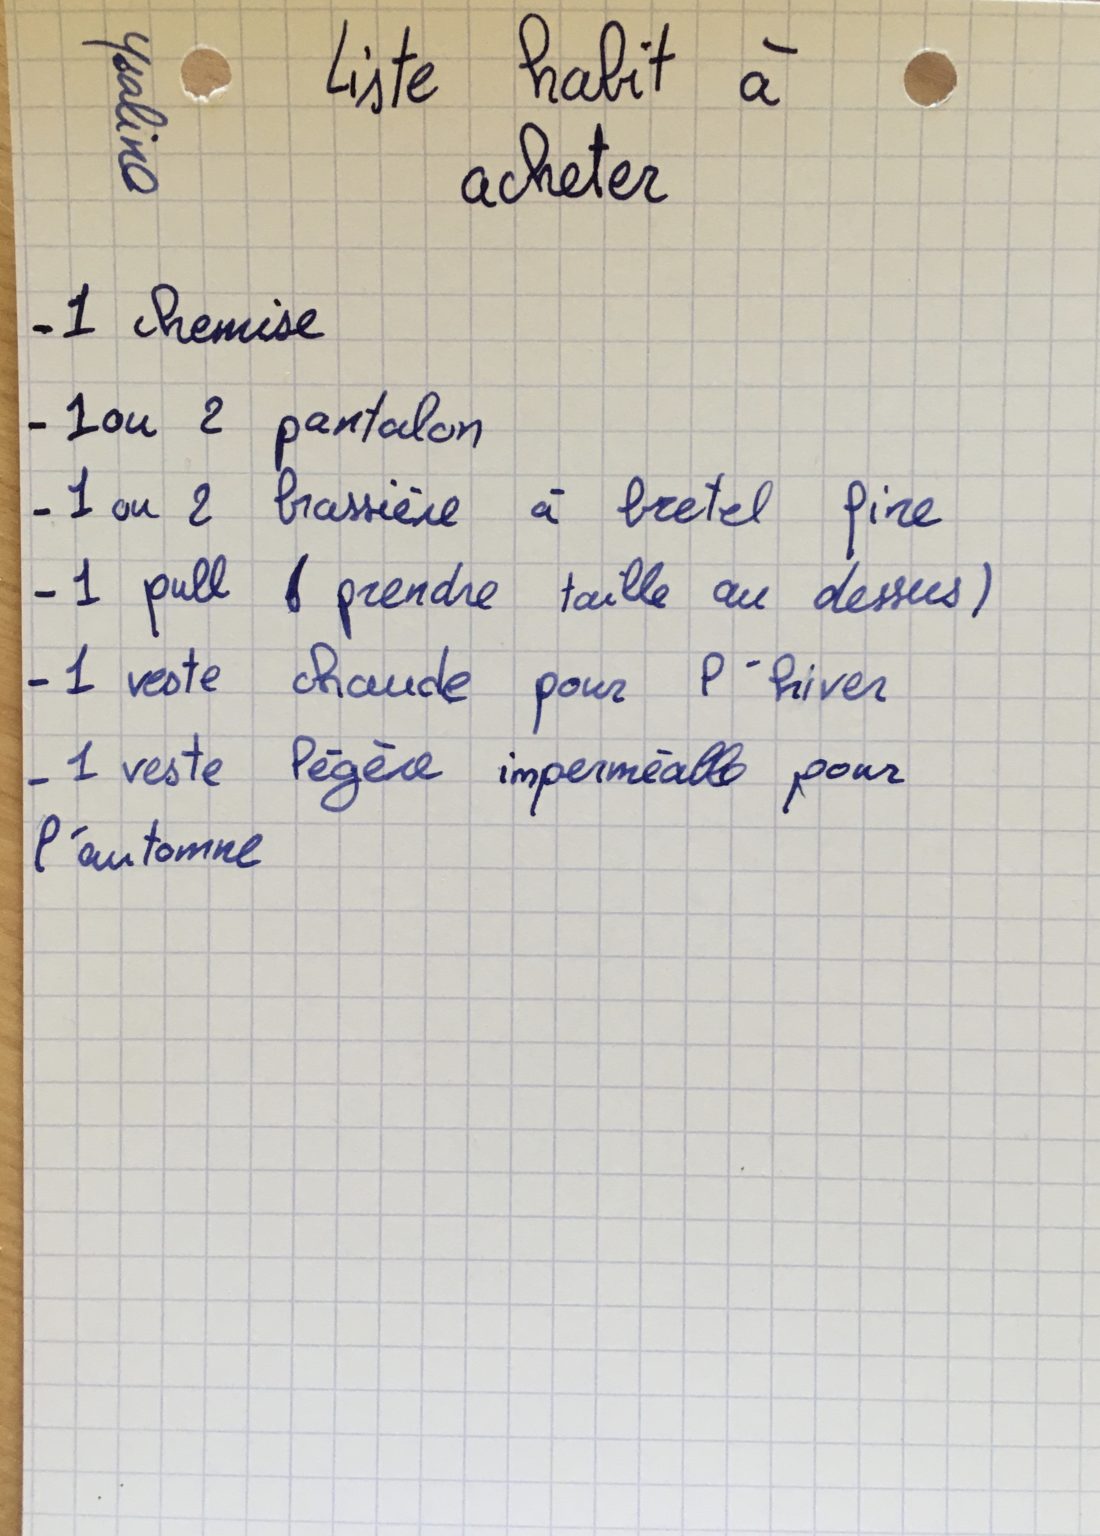 Ysaline
Liste habit à
acheter
-1 chemise
-1 ou 2 pantalon
-1 ou 2 brassière à bretel fine
-1 pull (prendre taille au dessus)
-1 veste chaude pour l'hiver
-1 veste légère imperméable pour
l'automne